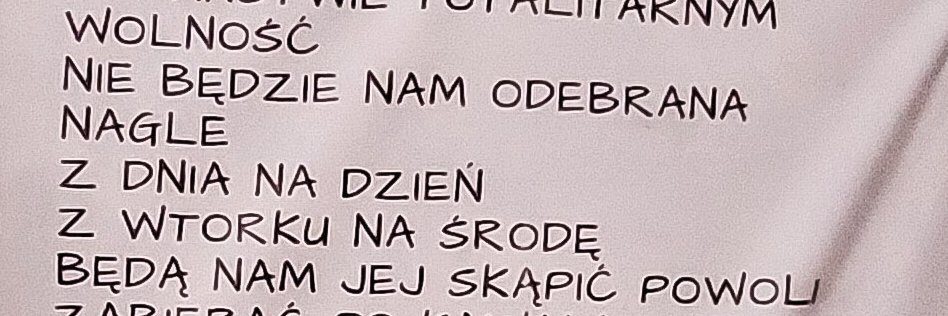 TOTALITARNYM
WOLNOŚĆ
NIE BĘDZIE NAM ODEBRANA
NAGLE
Z DNIA NA DZIEŃ
Z WTORKU NA ŚRODĘ
BĘDĄ NAM JEJ SKĄPIĆ POWOLI